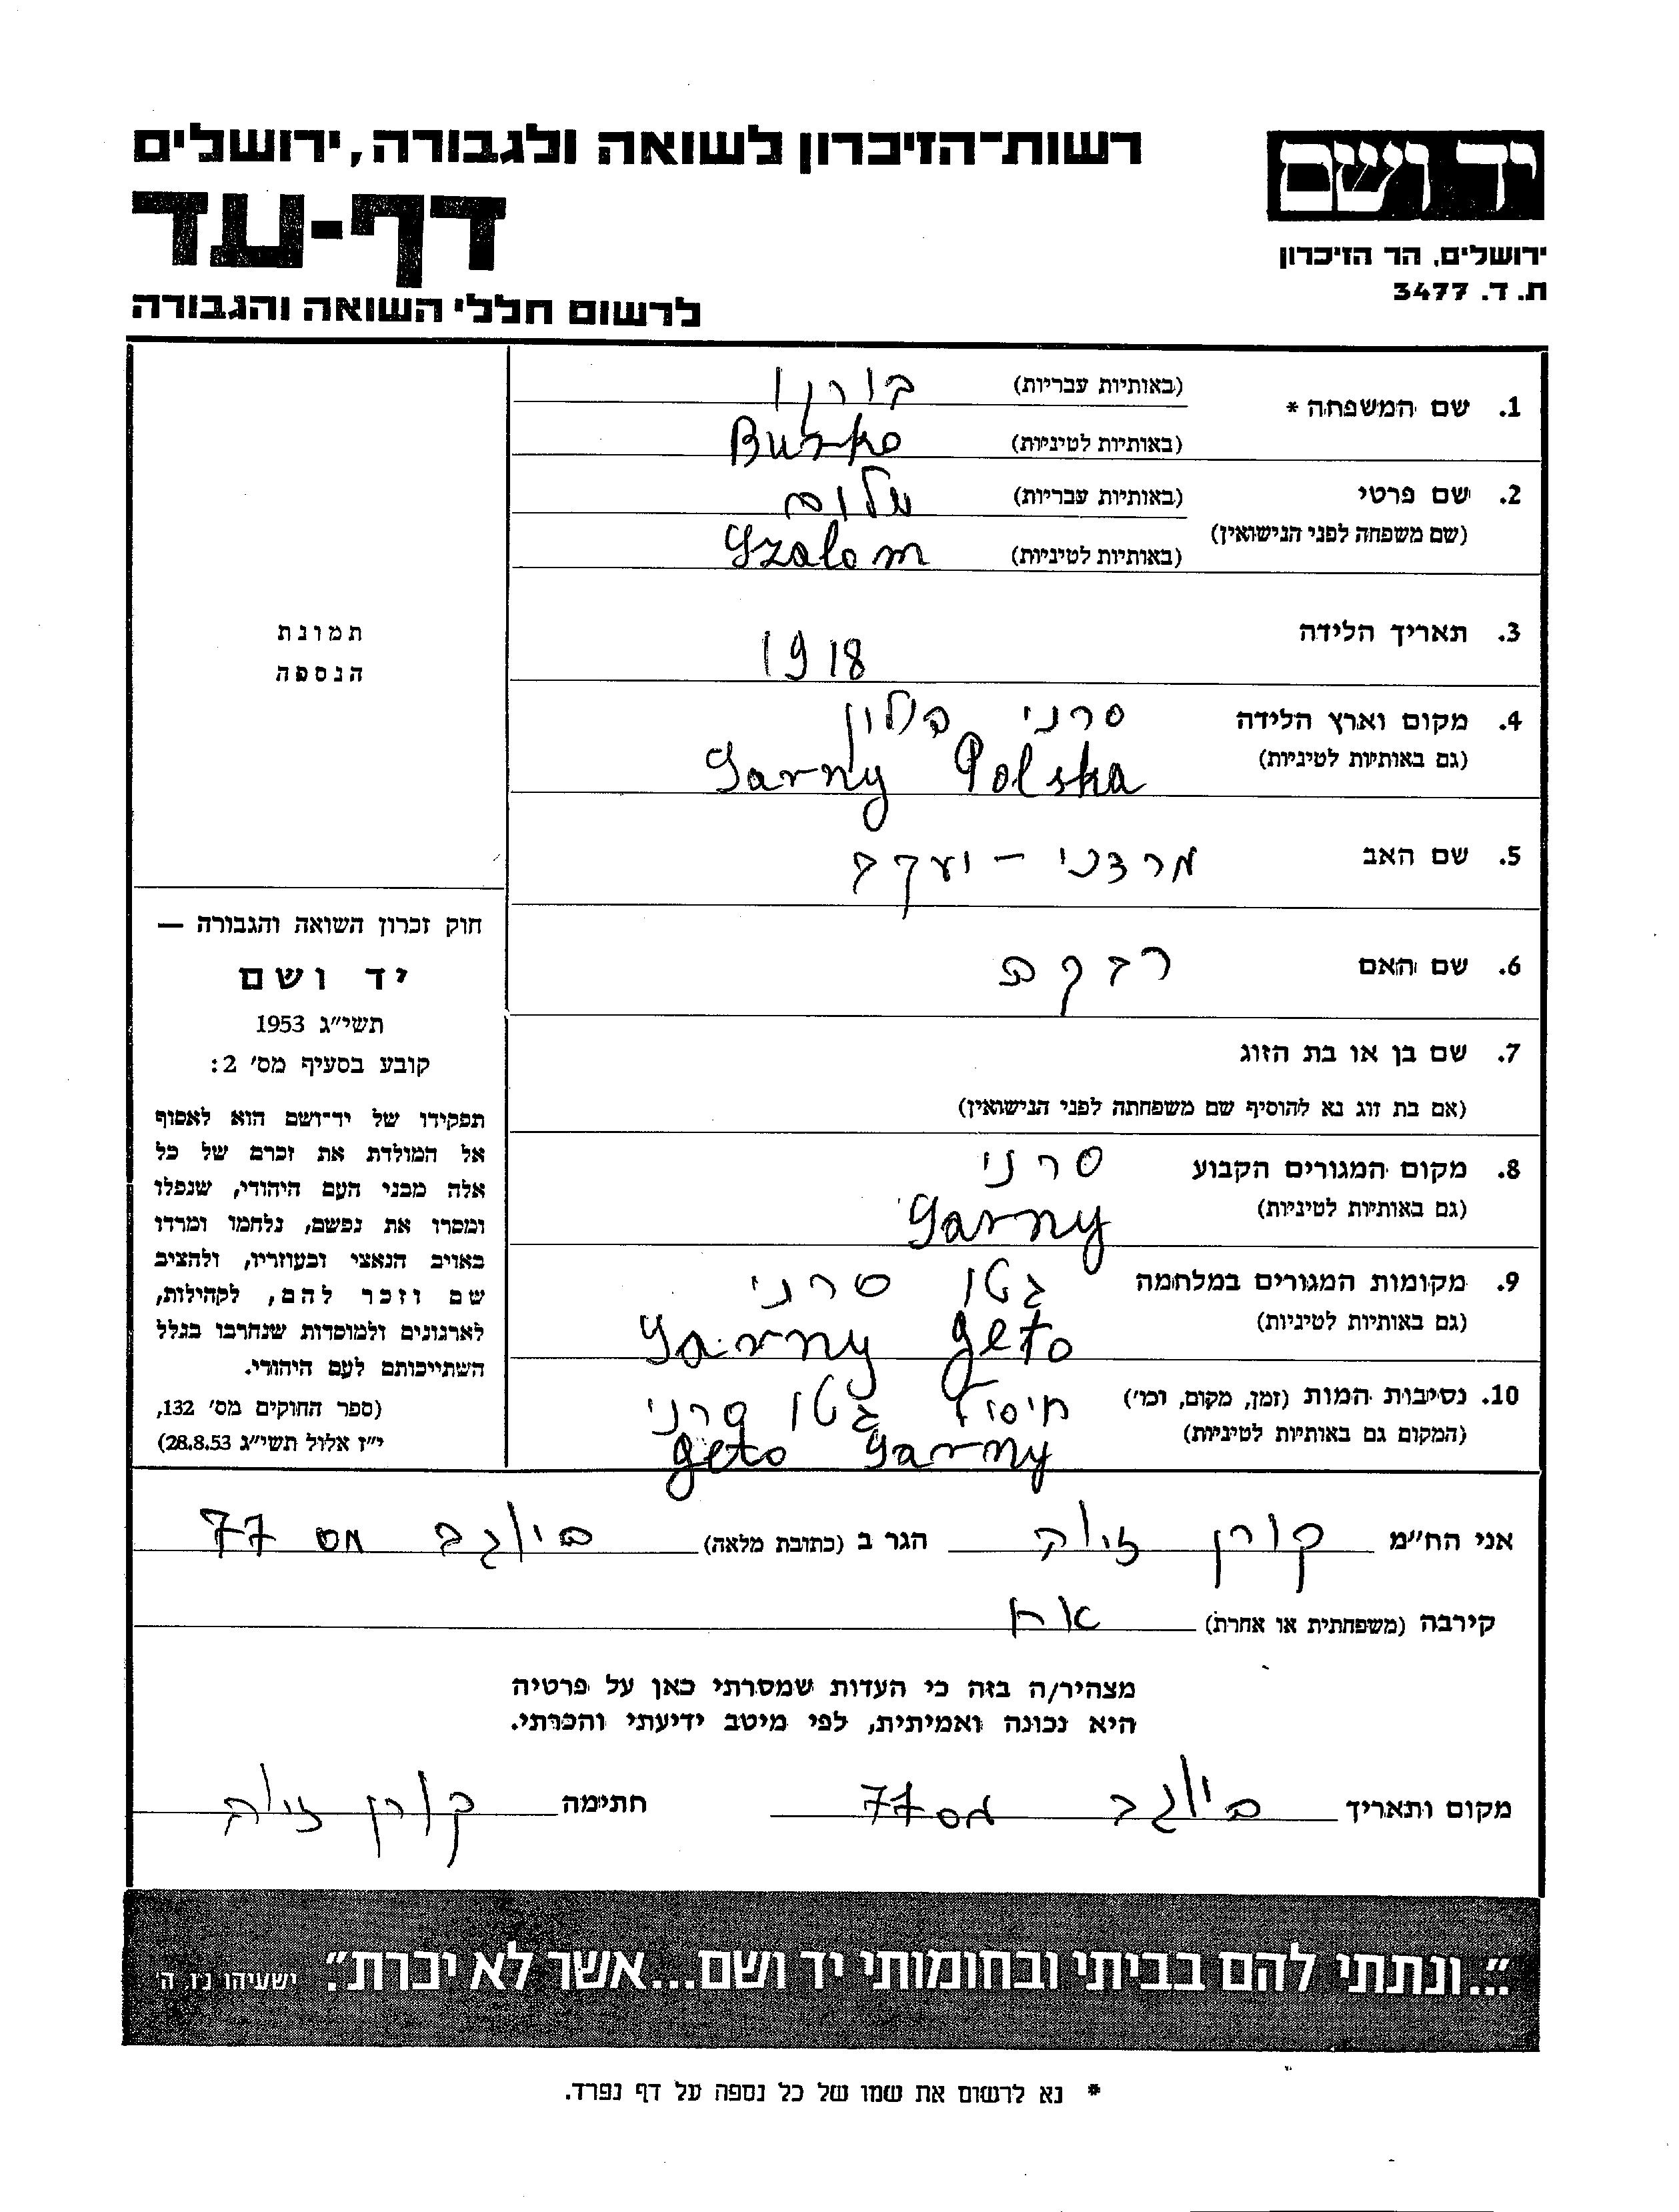 יד ושם
ירושלים, הר הזיכרון
ת. ד. 3477
רשות־הזיכרון לשואה ולגבורה, ירושלים
דף-עד
לרשום חללי השואה והגבורה
1. שם המשפחה *
(באותיות עבריות)
(באותיות לטיניות) Burko
2. שם פרטי
(שם משפחה לפני הנישואין)
(באותיות עבריות) שלום
(באותיות לטיניות) Szalom
3. תאריך הלידה 1918
4. מקום וארץ הלידה סרני פולין
(גם באותיות לטיניות) Sarny Polska
5. שם האב מרדכי - יעקב
6. שם האם רבקה
7. שם בן או בת הזוג
(אם בת זוג נא להוסיף שם משפחתה לפני הנישואין)
8. מקום המגורים הקבוע סרני
(גם באותיות לטיניות) Sarny
9. מקומות המגורים במלחמה גטו סרני
(גם באותיות לטיניות) Sarny geto
10. נסיבות המות (זמן, מקום, וכו') חיסול גטו סרני
(המקום גם באותיות לטיניות) geto Sarny
תמונת
הנספה
חוק זכרון השואה והגבורה —
יד ושם
תשי״ג 1953
קובע בסעיף מס' 2:
תפקידו של יד־ושם הוא לאסוף
אל המולדת את זכרם של כל
אלה מבני העם היהודי, שנפלו
ומסרו את נפשם, נלחמו ומרדו
באויב הנאצי ובעוזריו, ולהציב
שם וזכר להם, לקהילות,
לארגונים ולמוסדות שנחרבו בגלל
השתייכותם לעם היהודי.
(ספר החוקים מס' 132,
י״ז אלול תשי״ג 28.8.53)
אני הח״מ קורן הגר ב (כתובת מלאה) 77
קירבה (משפחתית או אחרת) אח
מצהיר/ה בזה כי העדות שמסרתי כאן על פרטיה
היא נכונה ואמיתית, לפי מיטב ידיעתי והכרתי.
מקום ותאריך 77 חתימה קורן
״...ונתתי להם בביתי ובחומותי יד ושם...אשר לא יכרת״. ישעיהו נ״ו, ה'
* נא לרשום את שמו של כל נספה על דף נפרד.